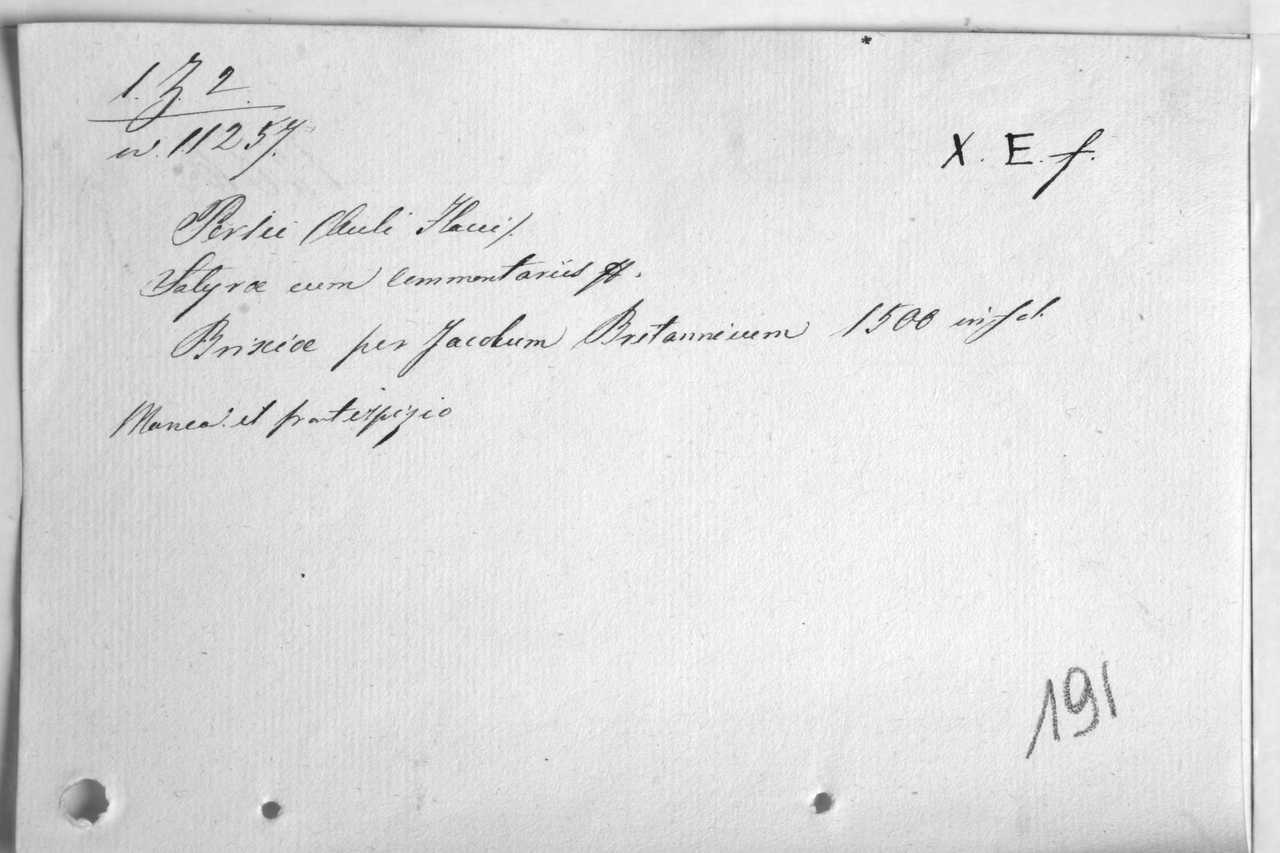 1. Z. 2.
n. 11257.
X. E. f.
Persii (Auli Flacci).
Satyræ cum commentariis
Brixiæ per Jacobum Britannicum 1500 in fol.
Manca il frontispizio
191